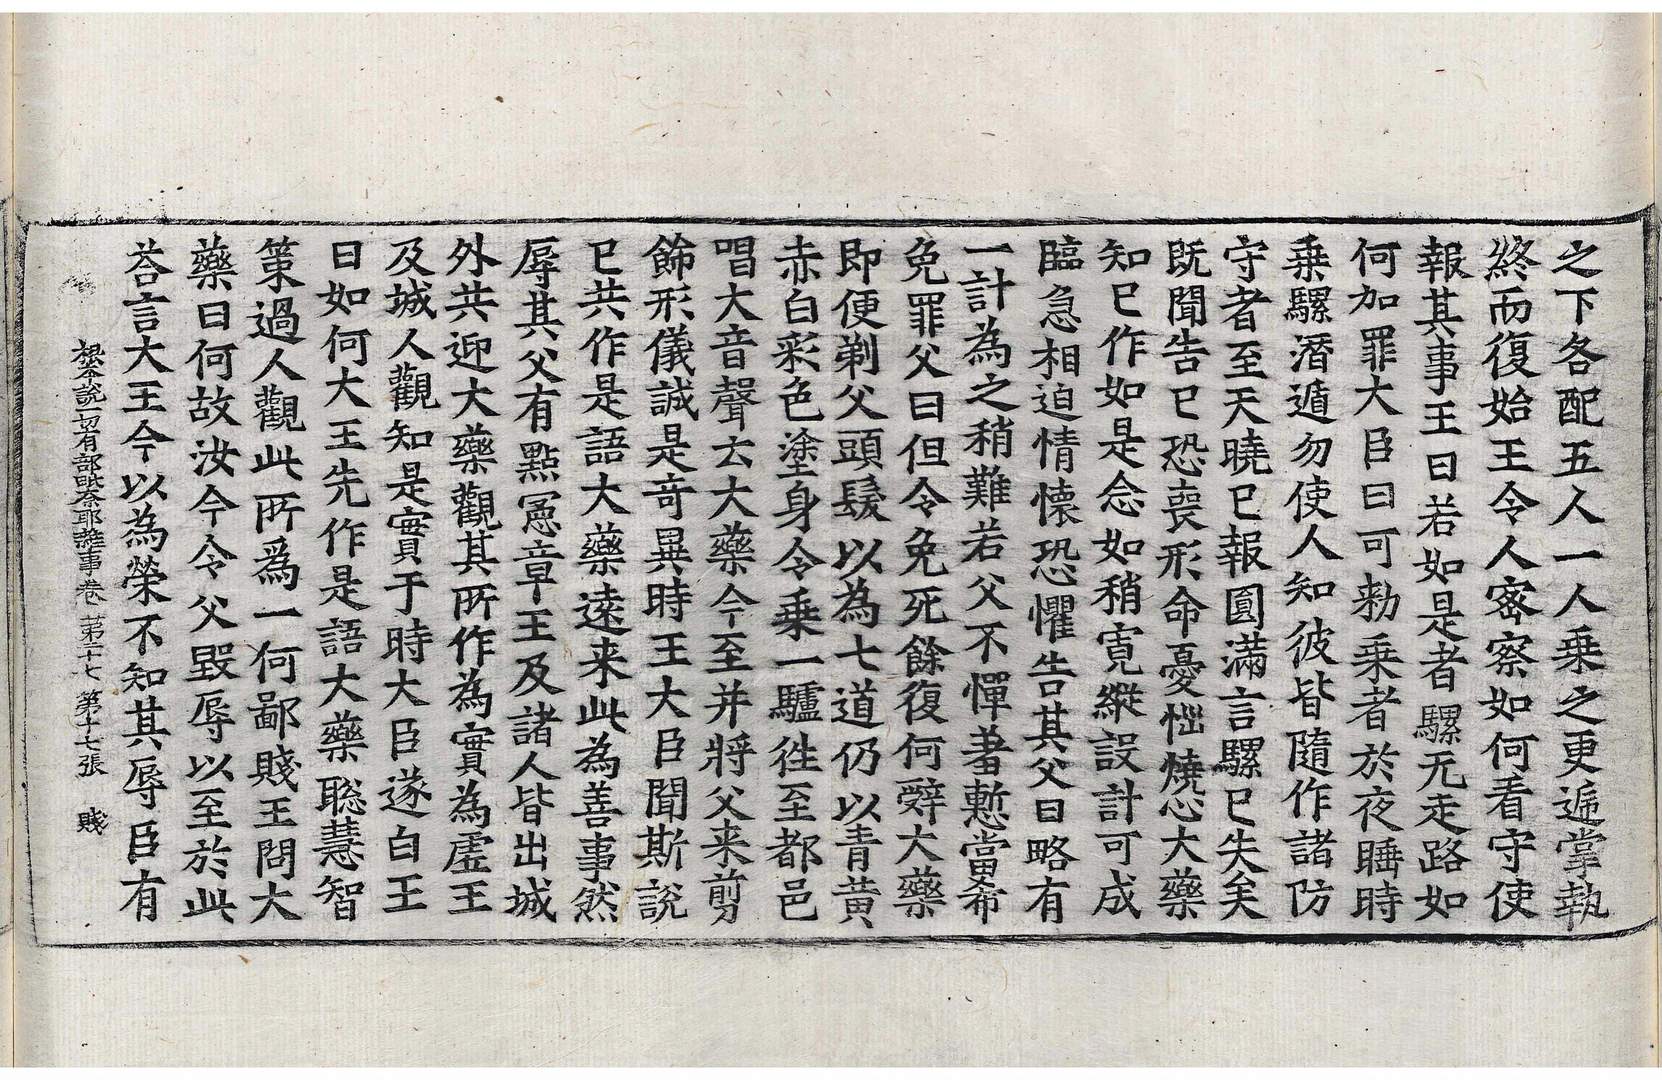 之下各配五人一人乗之更遞掌執
終而復始王令人密察如何看守使
報其事王曰若如是者騾无走路如
何加罪大臣曰可勑乗者於夜睡時
乗騾潛遁勿使人知彼皆隨作諸防
守者至天曉已報圓滿言騾已失矣
既聞告已恐喪形命憂惱燒心大藥
知已作如是念如稍寛縱設計可成
臨急相迫情懐恐懼告其父曰略有
一計為之稍難若父不憚羞慙當希
免罪父曰但令免死餘復何辝大藥
即便剃父頭髮以為七道仍以青黃
赤白彩色塗身令乗一驢徃至都邑
唱大音聲云大藥今至并將父来剪
餝形儀誠是竒異時王大臣聞斯說
已共作是語大藥遠来此為善事然
辱其父有㸃憲章王及諸人皆出城
外共迎大藥觀其所作為實為虛王
及城人觀知是實于時大臣遂白王
曰如何大王先作是語大藥聡慧智
策過人觀此所爲一何鄙賤王問大
藥曰何故汝今令父毀辱以至於此
荅言大王今以為榮不知其辱臣有
根本說一切有部毗奈耶雜事卷第二十七 第十七張 賤